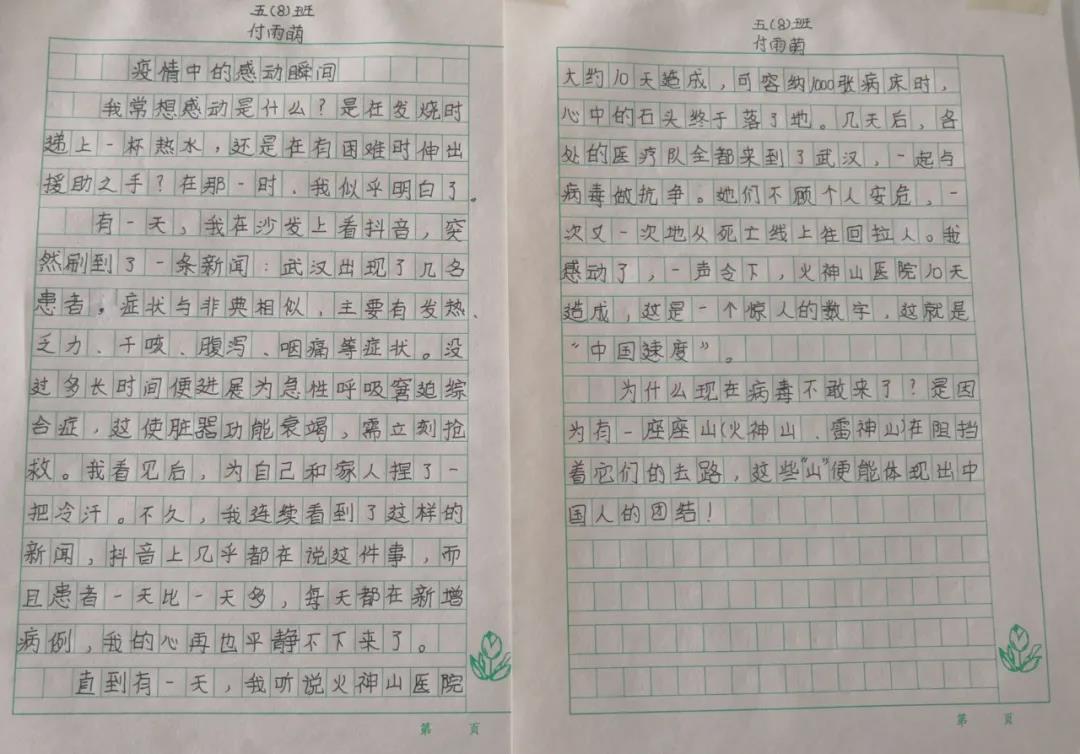 五(8)班
付雨萌
疫情中的感动瞬间
我常想感动是什么？是在发烧时
递上一杯热水，还是在有困难时伸出
援助之手？在那一时，我似乎明白了。
有一天，我在沙发上看抖音，突
然刷到了一条新闻：武汉出现了几名
患者，症状与非典相似，主要有发热、
乏力、干咳、腹泻、咽痛等症状。没
过多长时间便进展为急性呼吸窘迫综
合症，这使脏器功能衰竭，需立刻抢
救。我看见后，为自己和家人捏了一
把冷汗。不久，我连续看到了这样的
新闻，抖音上几乎都在说这件事，而
且患者一天比一天多，每天都在新增
病例，我的心再也平静不下来了。
直到有一天，我听说火神山医院
第 页
五(8)班
付雨萌
大约10天造成，可容纳1000张病床时，
心中的石头终于落了地。几天后，各
处的医疗队全都来到了武汉，一起与
病毒做抗争。她们不顾个人安危，一
次又一次地从死亡线上往回拉人。我
感动了，一声令下，火神山医院10天
造成，这是一个惊人的数字，这就是
“中国速度”。
为什么现在病毒不敢来了？是因
为有一座座山(火神山、雷神山)在阻挡
着它们的去路，这些“山”便能体现出中
国人的团结！
第 页